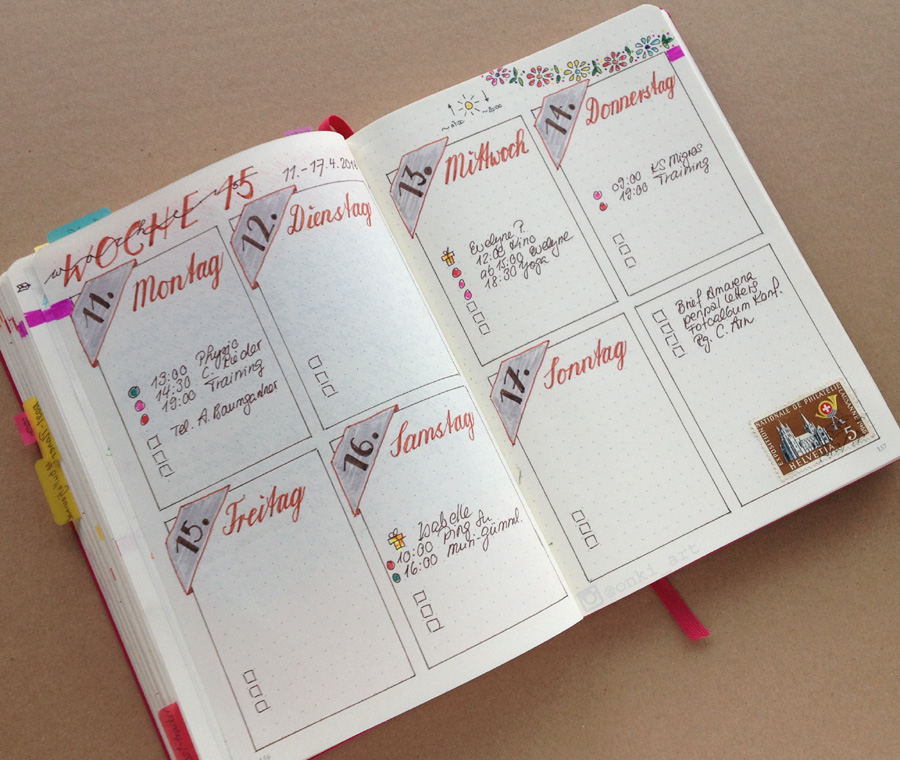 WOCHE 15
11.-17.4.201
11. Montag
13:00 Physio
14:30 C. Rieder
19:00 Training
Tel. A. Baumgartner
12. Dienstag
15. Freitag
16. Samstag
Isabelle
10:00 Ping Su
16:00
13. Mittwoch
Evelyne P.
12:00 Kino
ab 15:00 Evelyne
18:30 Yoga
14. Donnerstag
09:00 KS Migros
19:00 Training
17. Sonntag
Brief Amavena
penpal letters
Fotoalbum Konf.
Pg. C.
NATIONALE DE PHILATELIE
HELVETIA 5
@onki_art
137
136